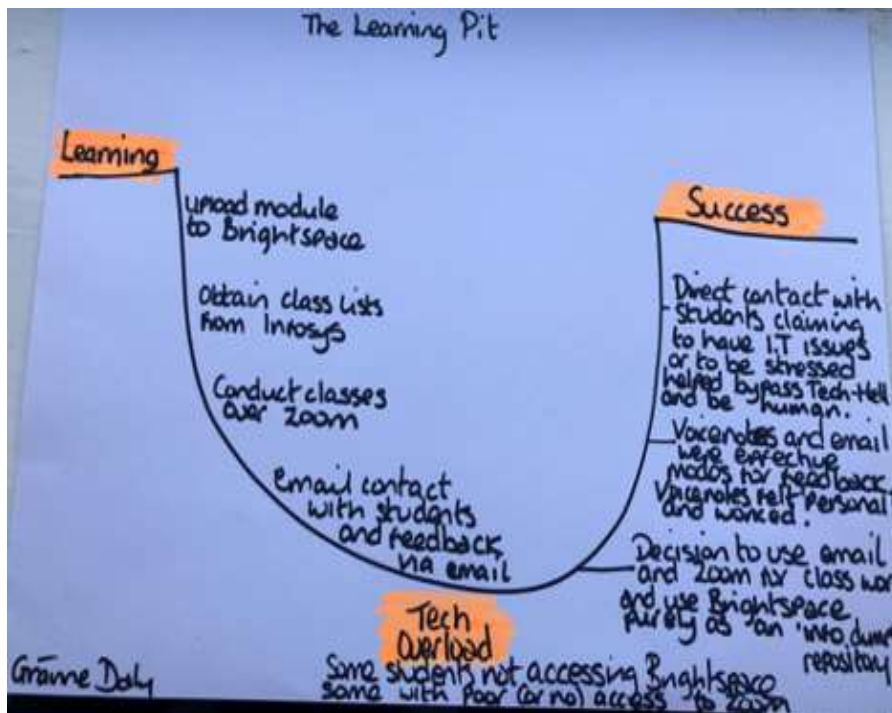 The Learning Pit
Learning
upload module
to Brightspace
Obtain class lists
from Infosys
Conduct classes
over Zoom
Email contact
with students
and feedback
via email
Tech
Overload
Some students not accessing Brightspace
some with poor (or no) access to Zoom
Success
Direct contact with
students claiming
to have I.T issues
or to be stressed
helped bypass Tech-Hell
and be human.
Voicenotes and email
were effective
modes for feedback.
Voicenotes felt personal
and worked.
Decision to use email
and Zoom for class wor
and use Brightspace
purely as an 'info dump'
repository
Gráinne Daly